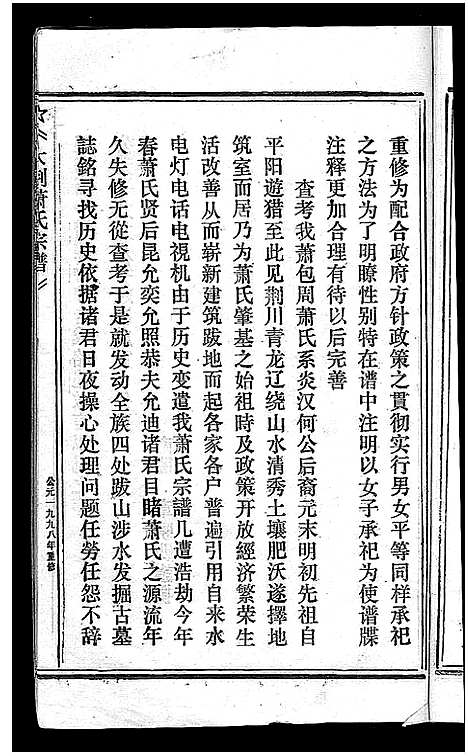 重修为配合政府方针政策之贯彻实行男女平等同样承祀
之方法为了明瞭性别特在谱中注明以女子承祀为使谱牒
注释更加合理有待以后完善
查考我萧包周萧氏系炎汉何公后裔元末明初先祖自
平阳遊猎至此见荆川青龙辽绕山水清秀土壤肥沃遂擇地
筑室而居乃为萧氏肇基之始祖時及政策开放經济繁荣生
活改善从而崭新建筑跋地而起各家各户普遍引用自来水
电灯电话电視机由于历史变遣我萧氏宗譜几遭浩劫今年
春萧氏贤后昆允奕允照恭夫允迪诸君目睹萧氏之源流年
久失修无從查考于是就发动全族四处跋山涉水发掘古墓
誌銘寻找历史依据诸君日夜操心处理问题任劳任怨不辞
萧氏宗譜
公元一九九八年重修